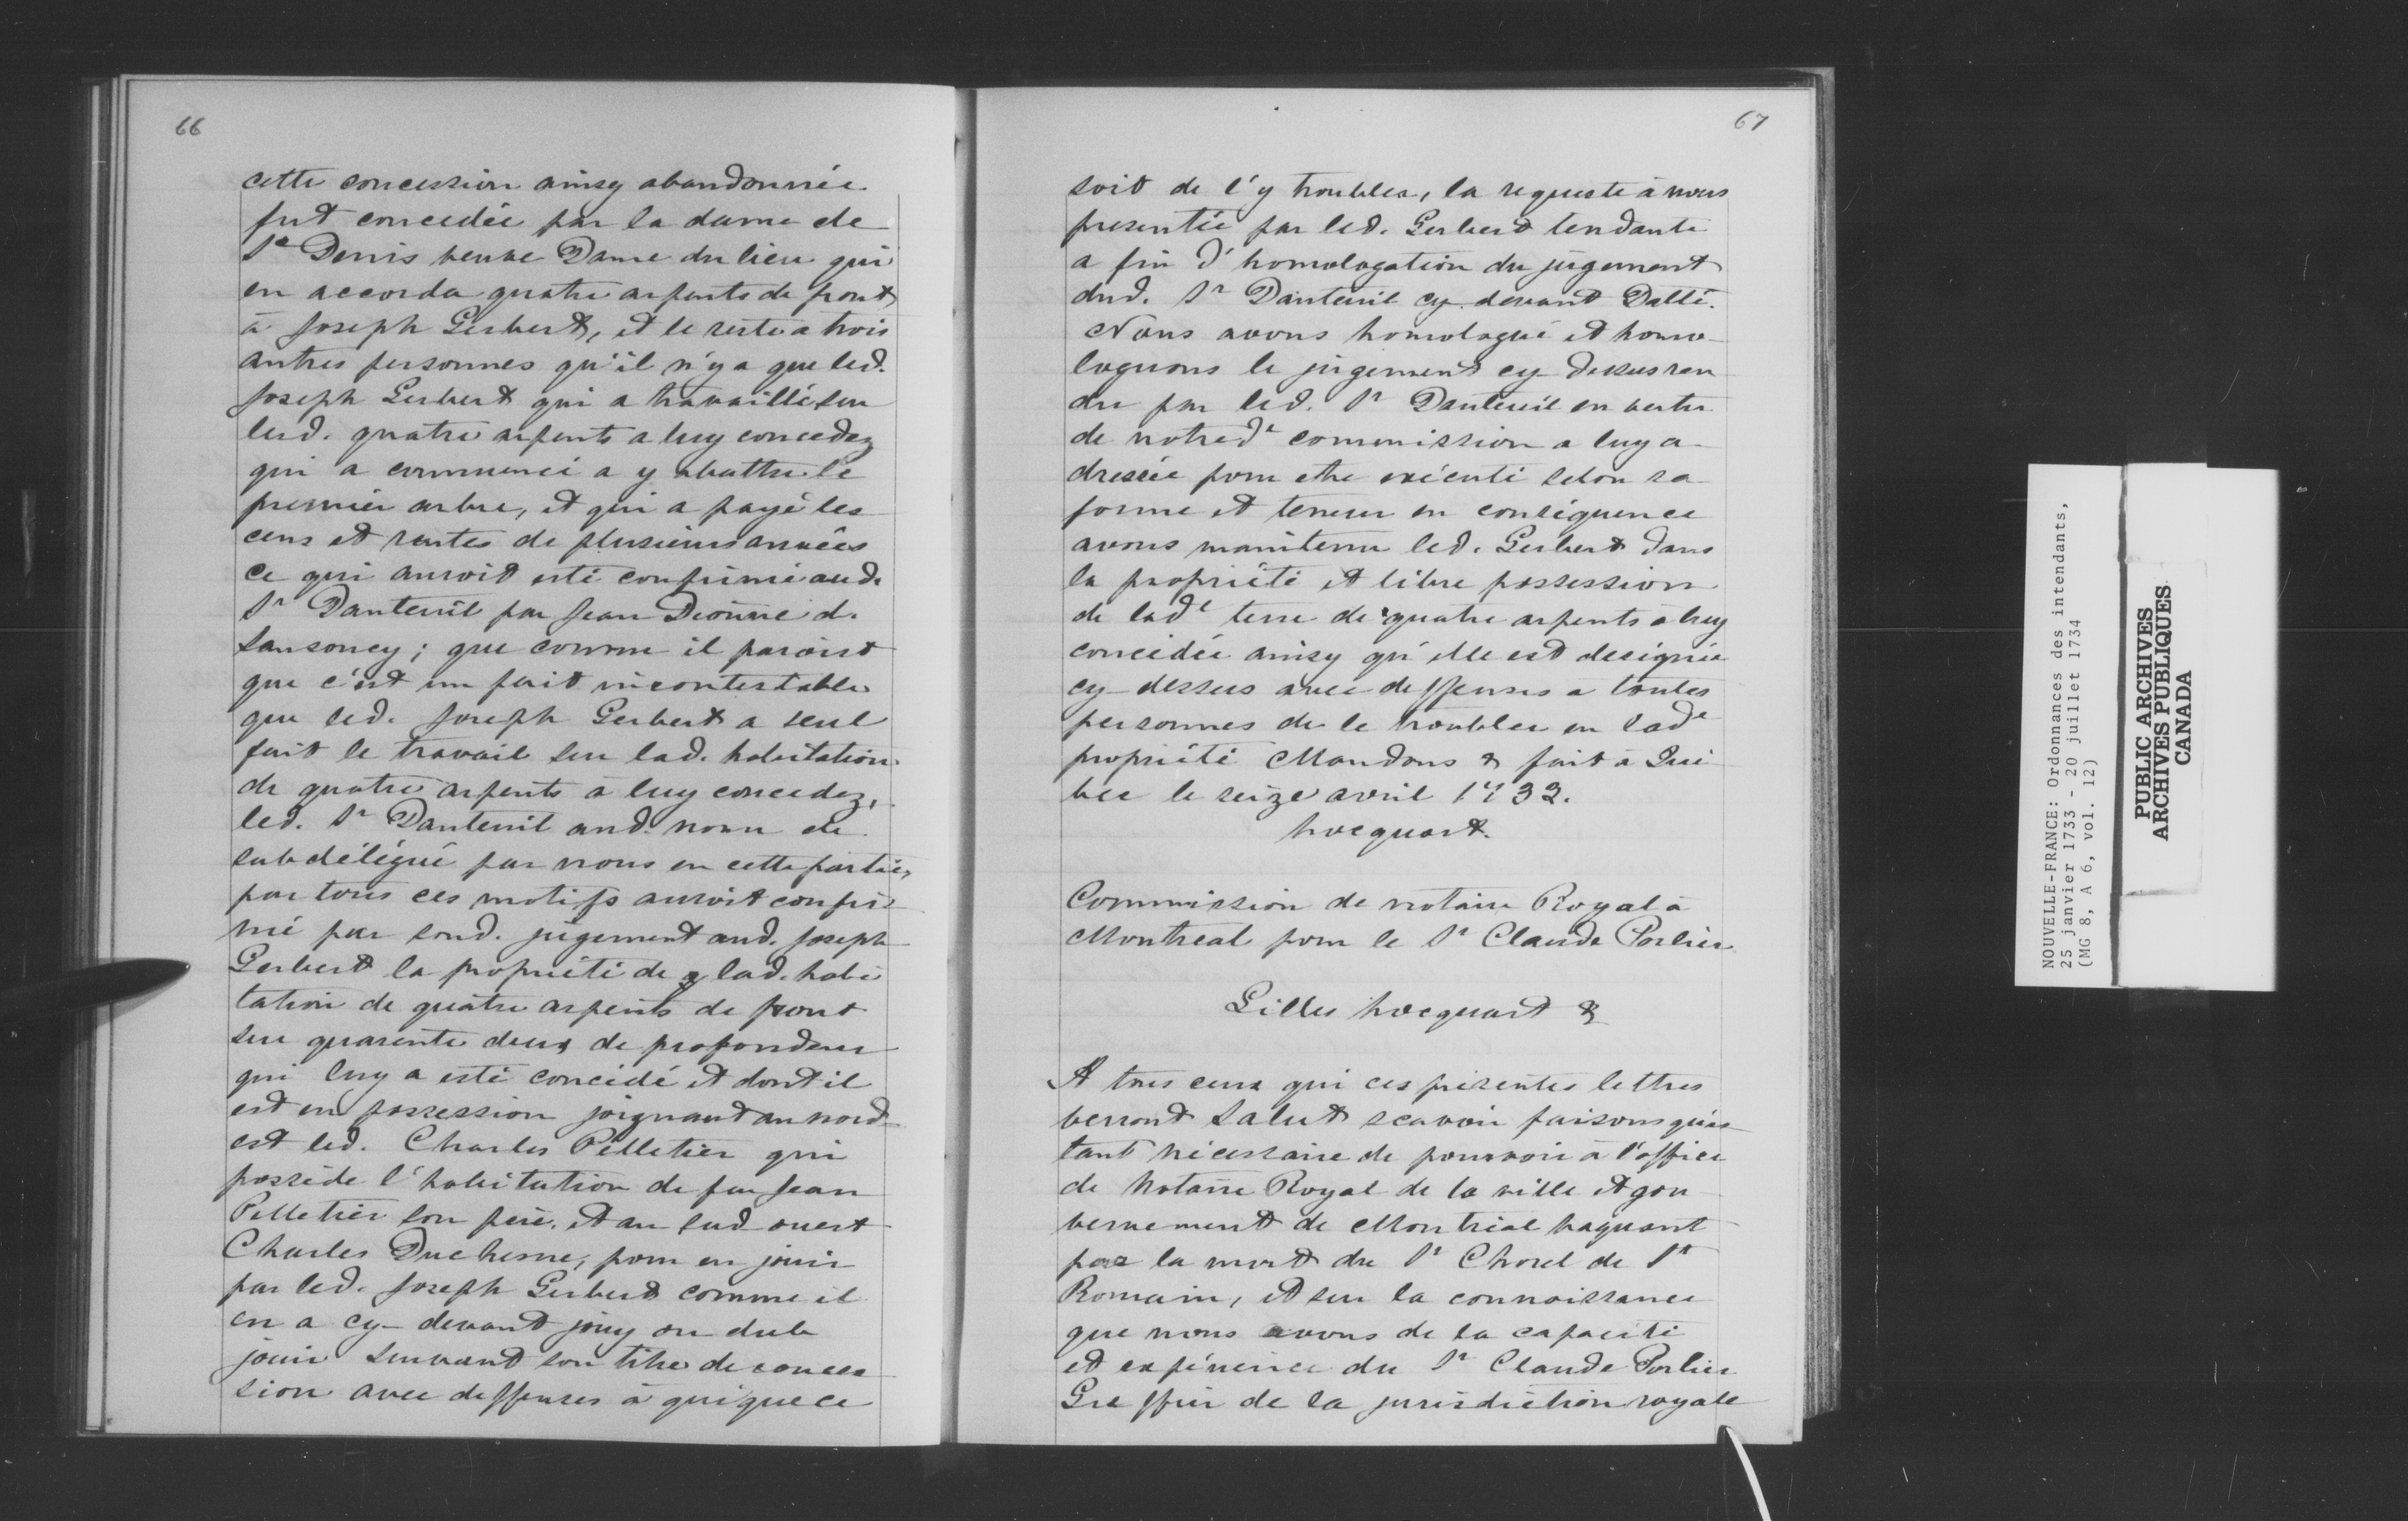 66
cette concession ainsy abandonnée
fut concedée par la dame de
St Denis veuve Dame du lieu qui
en accorda quatre arpents de front
à Joseph Gerbert, et le reste a trois
autres personnes qu'il n'y a que led.
Joseph Gerbert qui a travaillé sur
lesd. quatre arpents a luy concedez
qui a commencé a y abattre le
premier arbre, et qui a payé les
cens et rentes de plusieurs années
ce qui auroit esté confirmé aud.
Sr Danteuil par Jean Dionne d.
Sansoucy; que comme il paroist
que c'est un fait incontestable
que led. Joseph Gerbert a seul
fait le travail sur lad. habitation
de quatre arpents à luy concedez,
led. Sr Danteuil aud. nom de
subdélégué par nous en cette partie,
par tous ces motifs auroit confir
mé par sond. jugement aud. Joseph
Gerbert la propriété de lad. habi
tation de quatre arpents de front
sur quarente deux de profondeur
qui luy a esté concédé et dont il
est en possession joignant au nord
est led. Charles Pelletier qui
possède l'habitation de feu Jean
Pelletier son père, et au sud ouest
Charles Duchesne, pour en jouir
par led. Joseph Gerbert comme il
en a cy-devant jouy ou dub
jouir suivant son titre de conces
sion avec deffenses à quique ce
67
soit de l'y troubler, la requeste à nous
presentée par led. Gerbert tendante
a fin d'homologation du jugement
dud. Sr Danteuil cy devant Datté.
Nous avons homologué et homo
loguons le jugement cy-dessus ren
du par led. Sr Danteuil en vertu
de notred e commission a luy a
dressée pour etre exécuté selon sa
forme et teneur en conséquence
avons maintenu led. Gerbert dans
la propriété et libre possession
de lad e terre de quatre arpents à luy
concédée ainsy qu'elle est designée
cy-dessus avec deffenses a toutes
personnes de le troubler en lad e
propriété Mandons & fait à Qué
bec le seize avril 1733.
hocquart.
Commission de notaire Royal à
Montreal pour le Sr Claude Porlier
Gilles hocquart &
A tous ceux qui ces présentes lettres
verront Salut scavoir faisons qu'es
tant nécessaire de pourvoir à l'office
de Notaire Royal de la ville et gou
vernement de Montréal vaquant
par la mort du Sr Chorel de St
Romain, et sur la connoissance
que nous avons de la capacité
et expérience du Sr Claude Porlier
Greffier de la jurisdiction royale
NOUVELLE-FRANCE: Ordonnances des intendants,
25 janvier 1733 - 20 juillet 1734
(MG 8, A 6, vol. 12)
PUBLIC ARCHIVES
ARCHIVES PUBLIQUES
CANADA